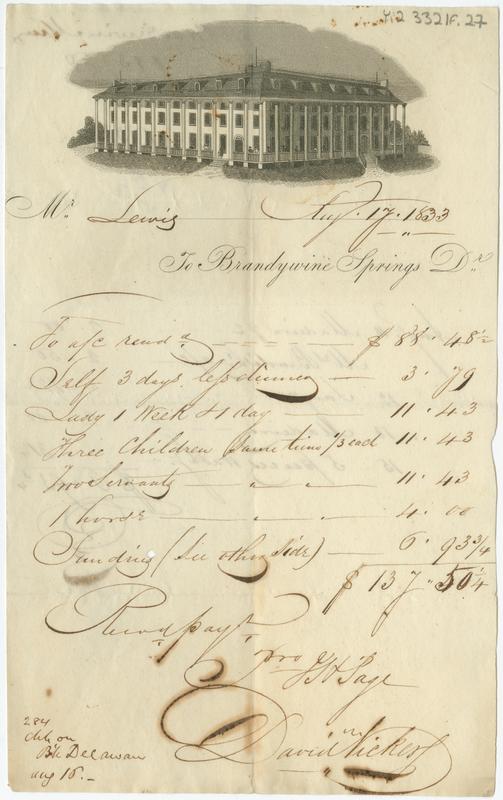 Mr. Lewis Aug. 17. 1833
To Brandywine Springs Dr.
To a/c rend. $ 88. 48½
Self 3 days, less dinner 3. 79
Lady 1 Week & 1 day 11. 43
Three Children Same time 1/3 each 11. 43
Two Servants " " 11. 43
1 horse " " 4. 00
Sundries (See other Side) 6. 93¾
$ 137 " 50¼
Recd payt
pro J H Page
David Vickers
284
chk on
Bk Delaware
aug 16. –